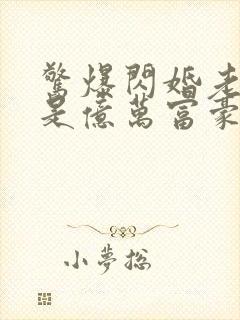 驚爆閃婚老
是億萬富豪
小夢總